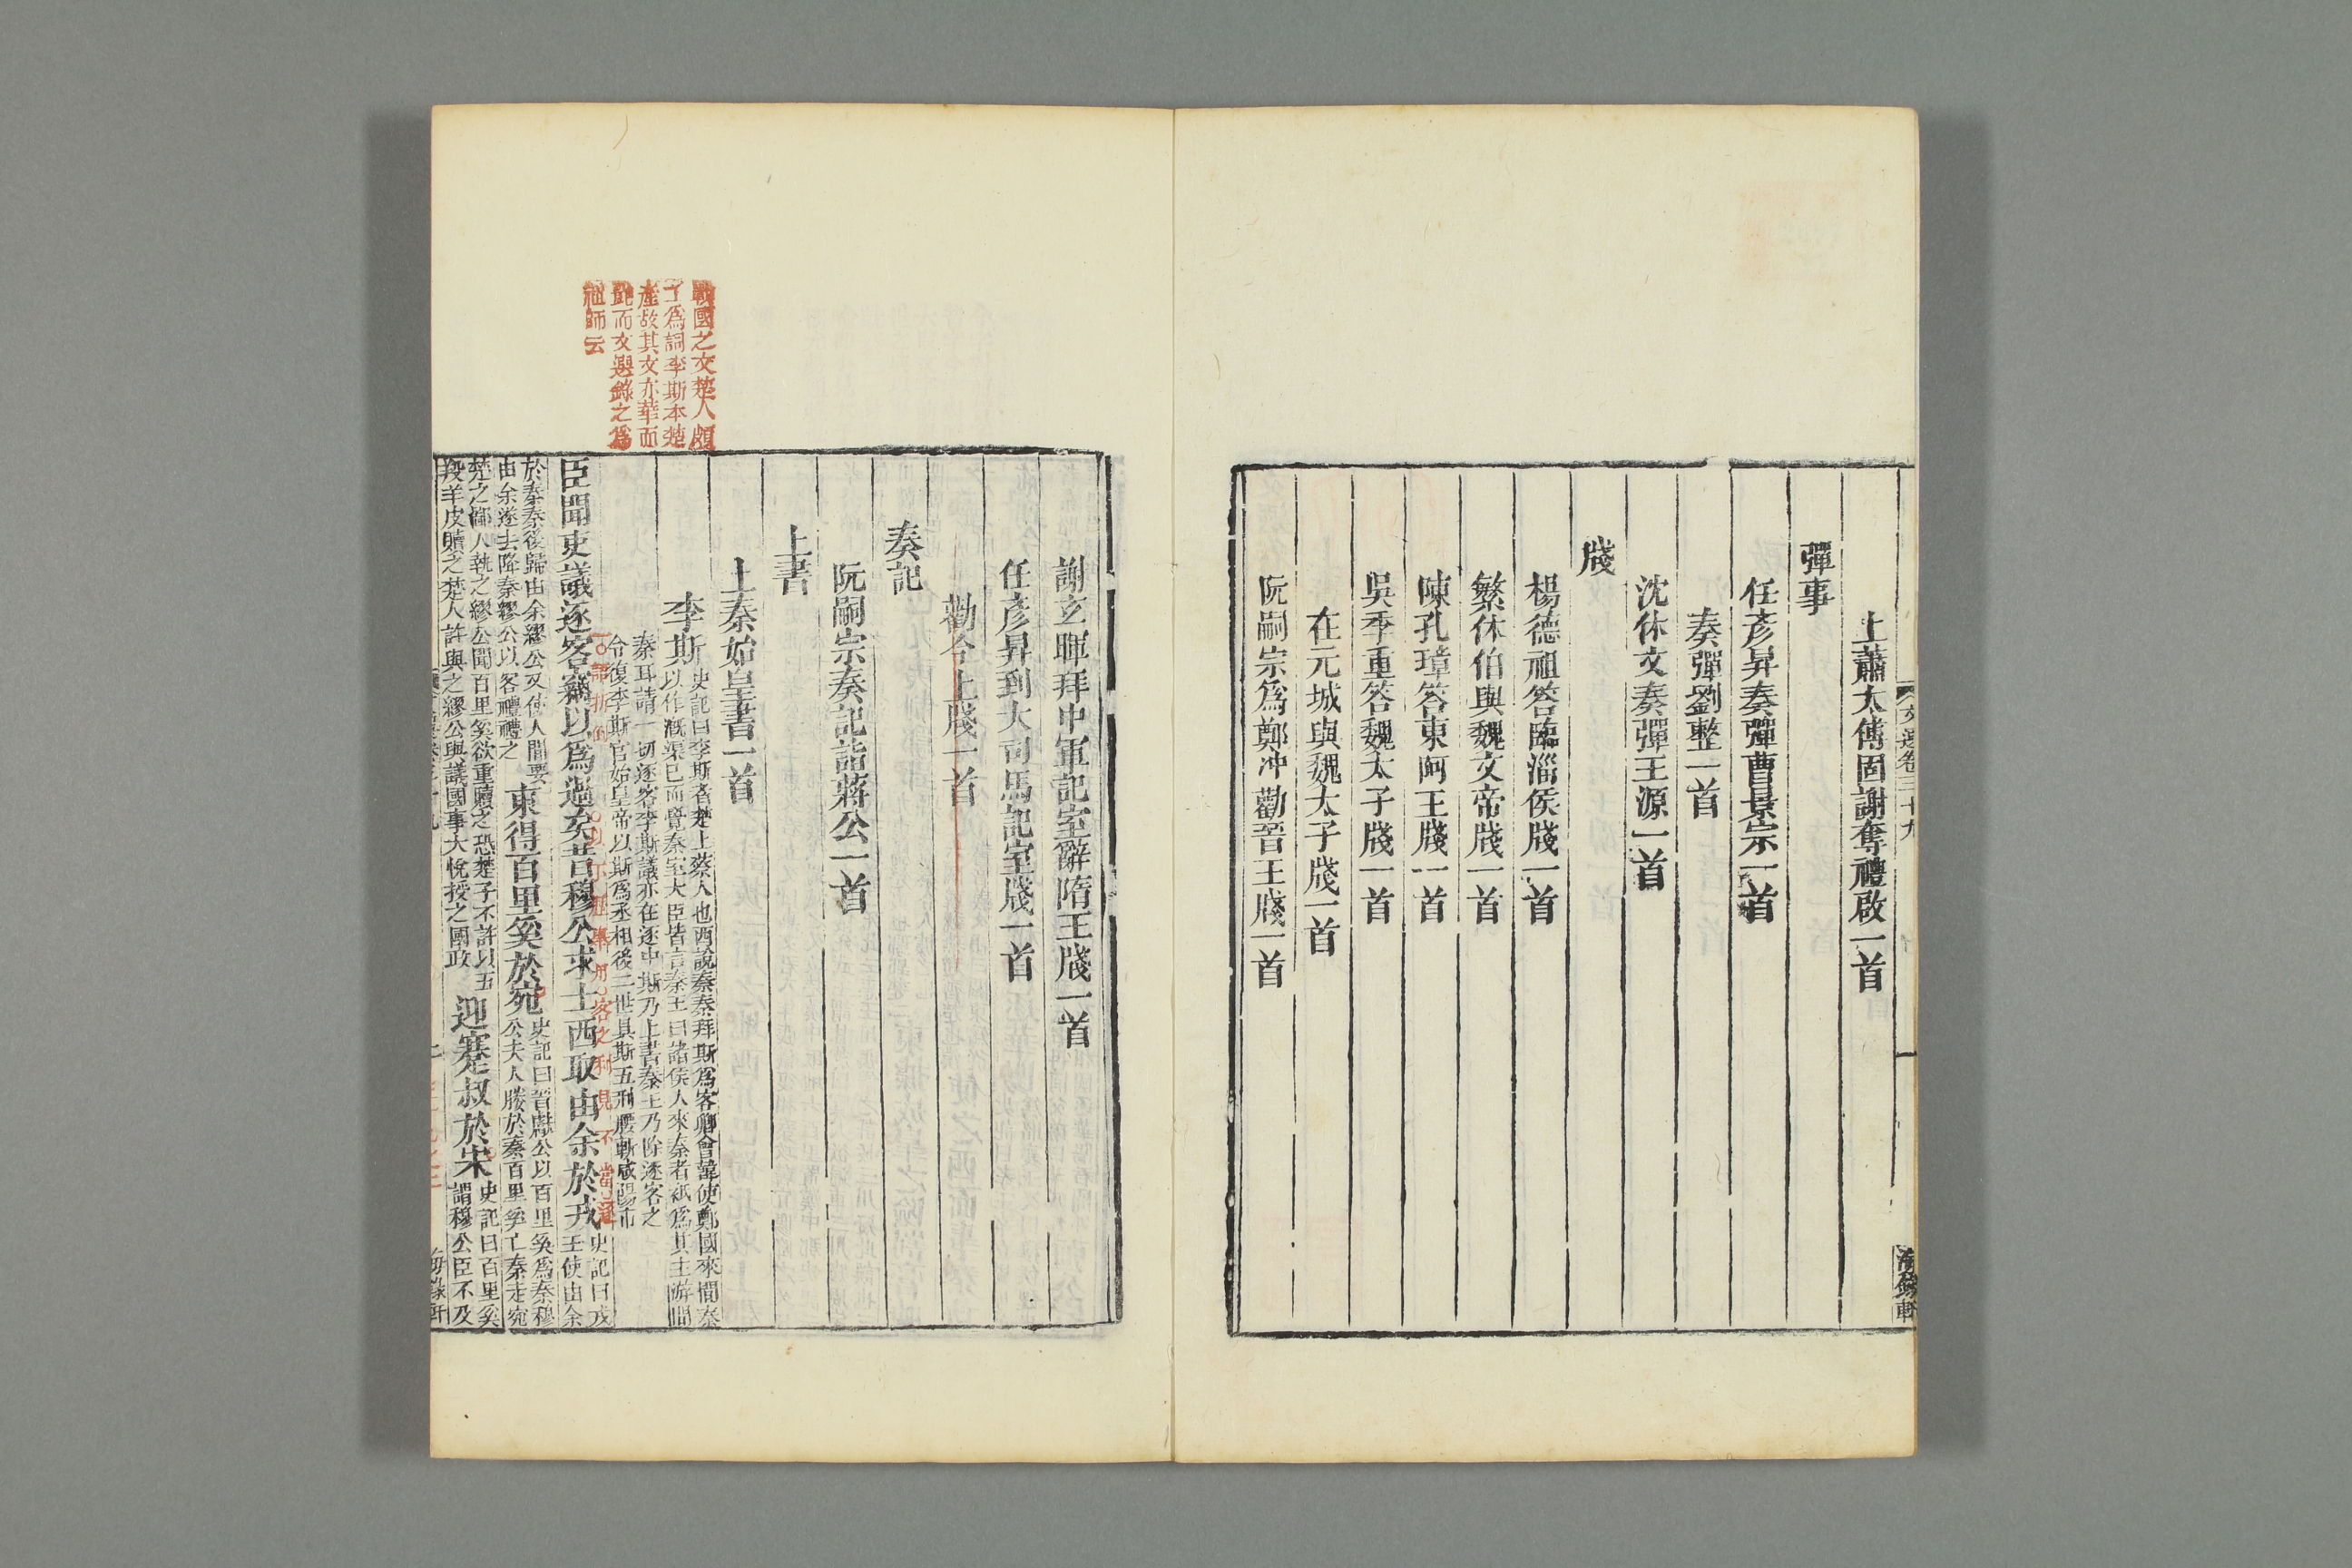 文選卷三十九
海錄軒
上蕭太傅固謝奪禮啟一首
彈事
任彥昇奏彈曹景宗一首
奏彈劉整一首
沈休文奏彈王源一首
牋
楊德祖答臨淄侯牋一首
繁休伯與魏文帝牋一首
陳孔璋答東阿王牋一首
吳季重答魏太子牋一首
在元城與魏太子牋一首
阮嗣宗爲鄭沖勸晉王牋一首
謝玄暉拜中軍記室辭隋王牋一首
任彥昇到大司馬記室牋一首
勸今上牋一首
奏記
阮嗣宗奏記詣蔣公一首
上書
上秦始皇書一首
戰國之文楚人頗
工爲詞李斯本楚
產故其文亦華而
麗而文選錄之爲
祖師云
李斯
史記曰李斯者楚上蔡人也西說秦秦拜斯爲客卿會韓使鄭國來間秦
以作漑渠已而覺秦室大臣皆言秦王曰諸侯人來秦者祇爲其主游間
秦耳請一切逐客李斯議亦在逐中斯乃上書秦王乃除逐客之
令復李斯官始皇帝以斯爲丞相後二世具斯五刑腰斬咸陽市
臣聞吏議逐客竊以爲過矣昔穆公求士西取由余於戎
史記曰戎
王使由余
於秦秦後歸由余繆公又使人間要
由余遂去降秦繆公以客禮禮之
東得百里奚於宛
史記曰晉獻公以百里奚爲秦穆
公夫人媵於秦百里奚亡秦走宛
楚之鄙人執之繆公聞百里奚欲重贖之恐楚子不許以五
羖羊皮贖之楚人許與之繆公與議國事大悅授之國政
迎蹇叔於宋
史記曰百里奚
謂穆公臣不及